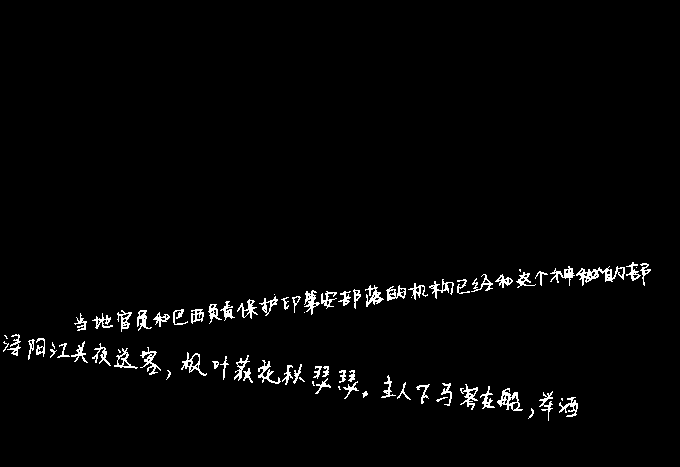 当地官员和巴西负责保护印第安部落的机构已经和这个神秘的部
浔阳江头夜送客，枫叶荻花秋瑟瑟。主人下马客在船，举酒